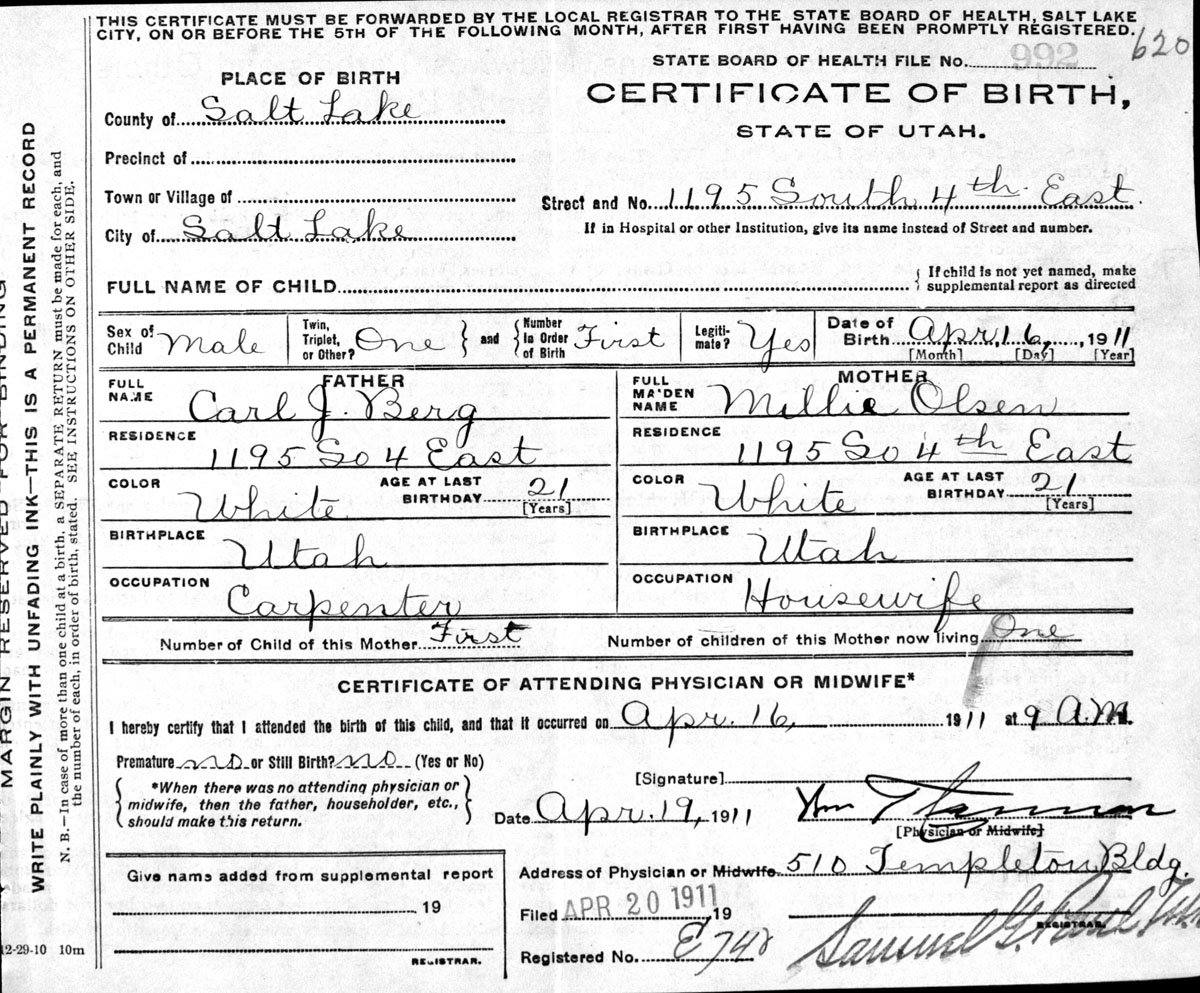 THIS CERTIFICATE MUST BE FORWARDED BY THE LOCAL REGISTRAR TO THE STATE BOARD OF HEALTH, SALT LAKE
CITY, ON OR BEFORE THE 5TH OF THE FOLLOWING MONTH, AFTER FIRST HAVING BEEN PROMPTLY REGISTERED.
620
STATE BOARD OF HEALTH FILE No. 992
CERTIFICATE OF BIRTH,
STATE OF UTAH.
PLACE OF BIRTH
County of Salt Lake
Precinct of
Town or Village of
City of Salt Lake
Street and No. 1195 South 4th East.
If in Hospital or other Institution, give its name instead of Street and number.
FULL NAME OF CHILD { If child is not yet named, make
supplemental report as directed
Sex of Child Male
Twin, Triplet, or Other? One } and { Number In Order of Birth First
Legiti-mate? Yes
Date of Birth Apr. 16, , 1911
[Month] [Day] [Year]
FATHER
FULL NAME Carl J. Berg
RESIDENCE 1195 So 4 East
COLOR White AGE AT LAST BIRTHDAY 21 [Years]
BIRTHPLACE Utah
OCCUPATION Carpenter
MOTHER
FULL MAIDEN NAME Millie Olsen
RESIDENCE 1195 So 4th East
COLOR White AGE AT LAST BIRTHDAY 21 [Years]
BIRTHPLACE Utah
OCCUPATION Housewife
Number of Child of this Mother First Number of children of this Mother now living One
CERTIFICATE OF ATTENDING PHYSICIAN OR MIDWIFE*
I hereby certify that I attended the birth of this child, and that it occurred on Apr. 16, 1911 at 9 A.M.
Premature no or Still Birth? no (Yes or No)
{ *When there was no attending physician or
midwife, then the father, householder, etc.,
should make this return. }
[Signature]
Date Apr. 19, 1911 Wm
[Physician or Midwife]
Address of Physician or Midwife 510 Templeton Bldg.
Filed APR 20 1911, 19
Samuel G. Paul
REGISTRAR.
Registered No. E742
Give name added from supplemental report
, 19
REGISTRAR.
12-29-10 10m
MARGIN RESERVED FOR BINDING
WRITE PLAINLY WITH UNFADING INK—THIS IS A PERMANENT RECORD
N. B.—In case of more than one child at a birth, a SEPARATE RETURN must be made for each, and
the number of each, in order of birth, stated. SEE INSTRUCTIONS ON OTHER SIDE.